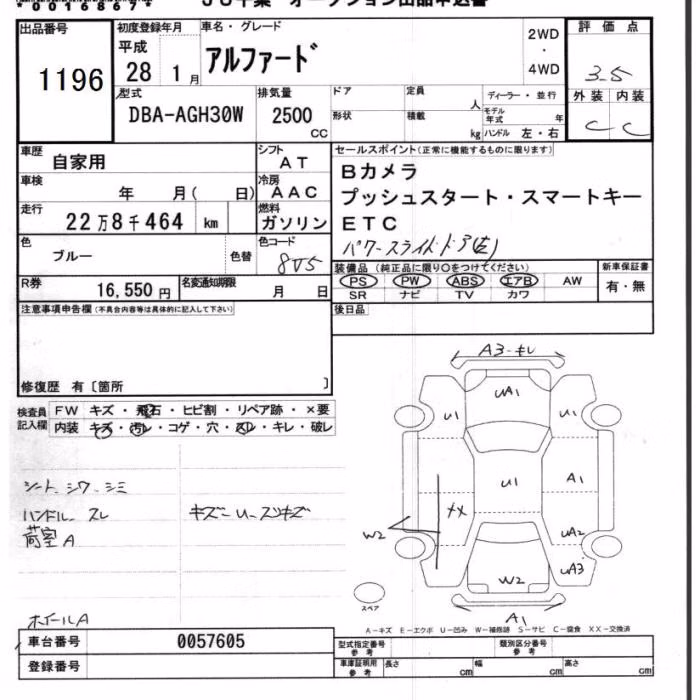 *0016867*
出品番号
1196
初度登録年月
平成
28 1月
車名・グレード
アルファード
2WD
・
4WD
評価点
3.5
型式
DBA-AGH30W
排気量
2500
CC
ドア
形状
定員
人
積載
kg
ディーラー・並行
モデル年式 年
ハンドル 左・右
外装 内装
C C
車歴
自家用
シフト
AT
車検
年 月( 日)
冷房
AAC
走行
22万8千464 km
燃料
ガソリン
色
ブルー
色替
色コード
8V5
R券
16,550円
名変通知期限
月 日
セールスポイント(正常に機能するものに限ります)
Bカメラ
プッシュスタート・スマートキー
ETC
パワースライドドア(左)
装備品 (純正品に限り○をつけてください)
PS PW ABS エアB AW
SR ナビ TV カワ
新車保証書
有・無
注意事項申告欄(不具合内容等は具体的に記入して下さい)
後日品
修復歴 有〔箇所 〕
検査員
記入欄
FW キズ・飛石・ヒビ割・リペア跡・×要
内装 キズ・汚レ・コゲ・穴・スレ・キレ・破レ
シート シワ シミ
ハンドル スレ
荷室 A
キズー U スリキズ
ホイールA
A3-キレ
UA1
U1
U1
U1
A1
メX
W2
UA2
UA3
W2
A1
スペア
A-キズ E-エクボ U-凹み W-補修跡 S-サビ C-腐食 XX-交換済
車台番号
0057605
登録番号
型式指定番号
参考
類別区分番号
参考
車庫証明用
参考
長さ cm
幅 cm
高さ cm